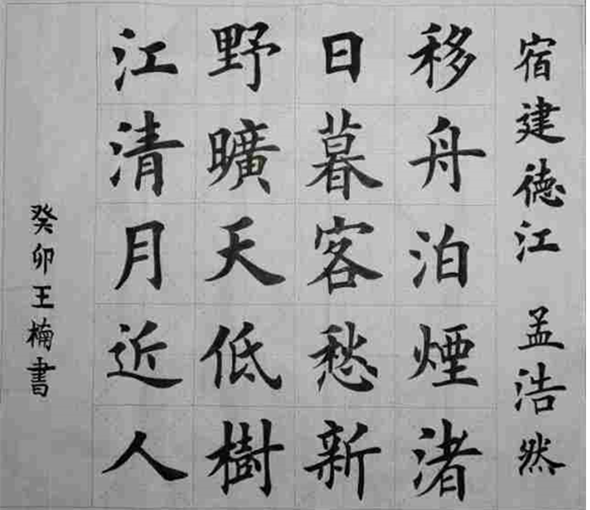 宿建德江 孟浩然
移舟泊煙渚
日暮客愁新
野曠天低樹
江清月近人
癸卯王楠書